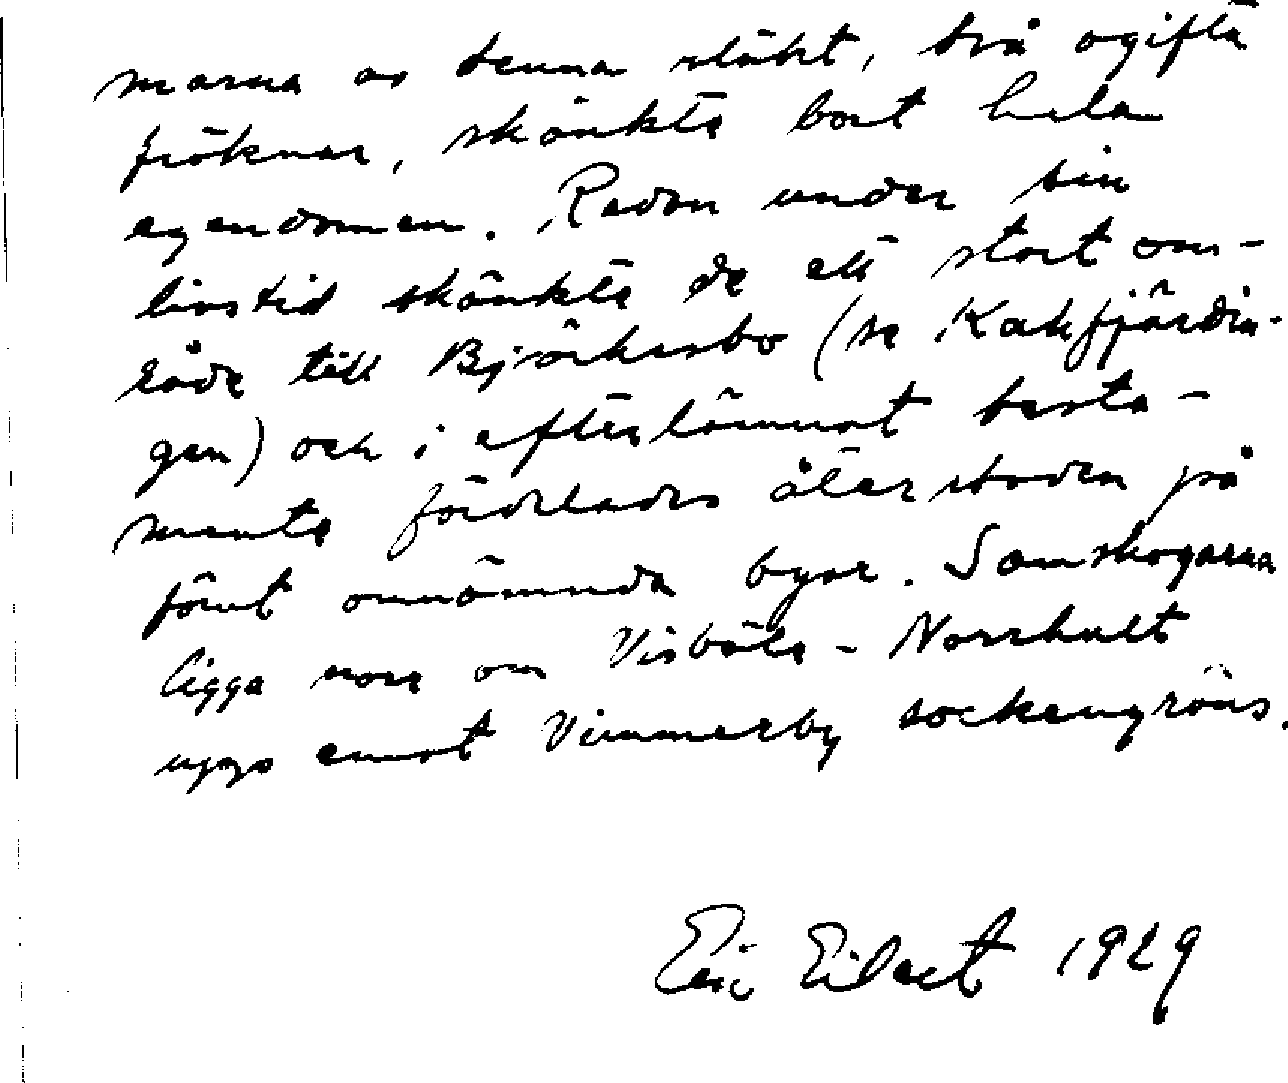 marna av denna släkt, två ogifta
fröknar, skänkte bort hela
egendomen. Redan under sin
livstid skänkte de ett stort om-
råde till Björkesbo (se Kakfjärdin-
gen) och i efterlämnat testa-
mente fördelades återstoden på
förut omnämnda byar. Samskogarna
ligga norr om Visböle - Norrhult
upp emot Vimmerby sockengräns.
Eric Eilert 1929